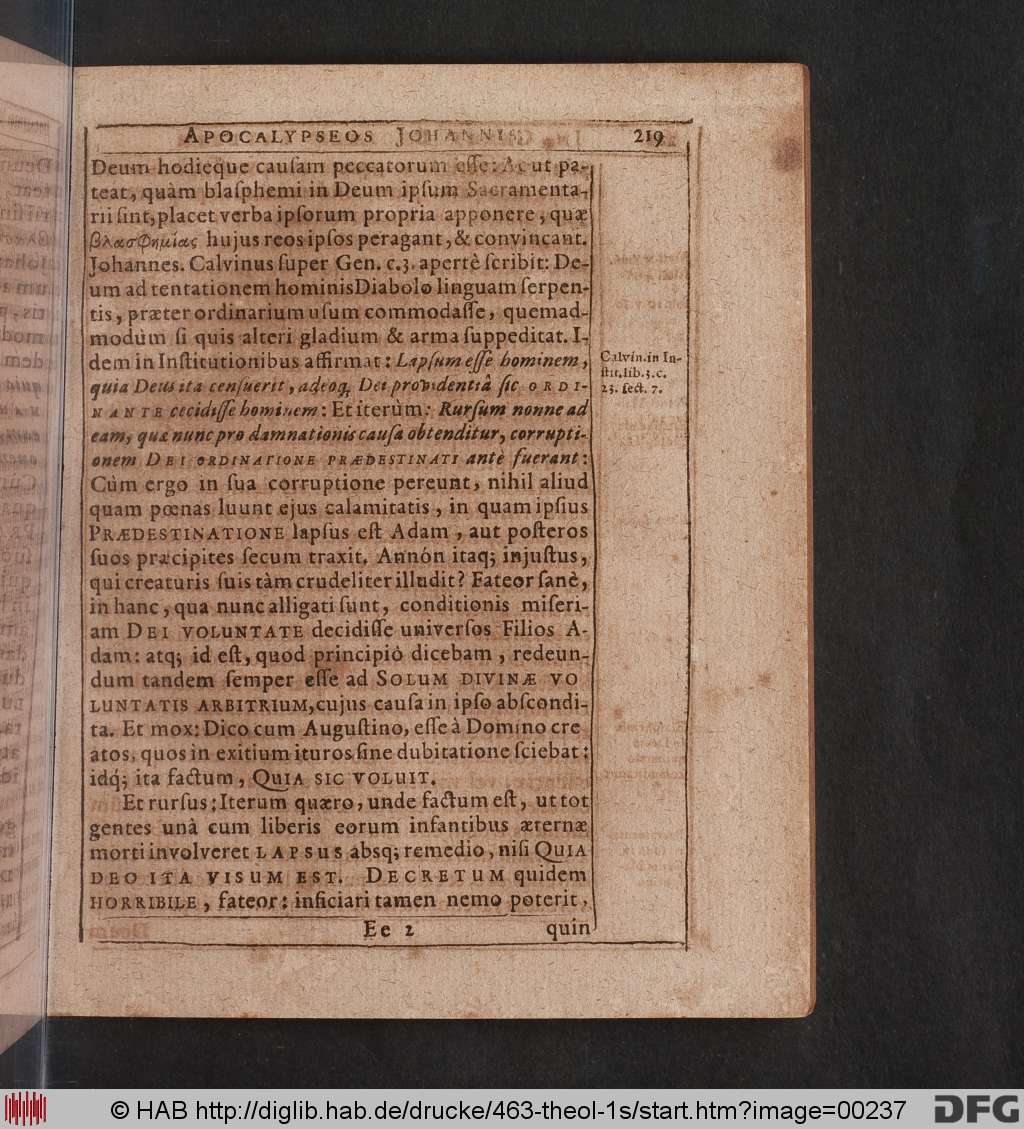 APOCALYPSEOS JOHANNIS. 219
Deum hodieque cauſam peccatorum eſſe: Ac ut pa-
teat, quàm blaſphemi in Deum ipſum Sacramenta-
rii ſint, placet verba ipſorum propria apponere, quæ
βλασφημίας hujus reos ipſos peragant, & convincant.
Johannes. Calvinus ſuper Gen. c.3. apertè ſcribit: De-
um ad tentationem hominis Diabolo linguam ſerpen-
tis, præter ordinarium uſum commodaſſe, quemad-
modùm ſi quis alteri gladium & arma ſuppeditat. I-
dem in Inſtitutionibus affirmat: Lapſum eſſe hominem,
quia Deus ita cenſuerit, adeoq; Dei providentiâ ſic ORDI-
NANTE cecidiſſe hominem: Et iterùm: Rurſum nonne ad
eam, quæ nunc pro damnationis cauſa obtenditur, corrupti-
onem DEI ORDINATIONE PRÆDESTINATI antè fuerant:
Cùm ergo in ſua corruptione pereunt, nihil aliud
quam pœnas luunt ejus calamitatis, in quam ipſius
PRÆDESTINATIONE lapſus eſt Adam, aut poſteros
ſuos præcipites ſecum traxit. Annón itaq; injuſtus,
qui creaturis ſuis tàm crudeliter illudit? Fateor ſanè,
in hanc, qua nunc alligati ſunt, conditionis miſeri-
am DEI VOLUNTATE decidiſſe univerſos Filios A-
dam: atq; id eſt, quod principiò dicebam, redeun-
dum tandem ſemper eſſe ad SOLUM DIVINÆ VO
LUNTATIS ARBITRIUM, cujus cauſa in ipſo abſcondi-
ta. Et mox: Dico cum Auguſtino, eſſe à Domino cre
atos, quos in exitium ituros ſine dubitatione ſciebat:
idq; ita factum, QUIA SIC VOLUIT.
Et rurſus: Iterum quæro, unde factum eſt, ut tot
gentes unà cum liberis eorum infantibus æternæ
morti involveret LAPSUS absq; remedio, niſi QUIA
DEO ITA VISUM EST. DECRETUM quidem
HORRIBILE, fateor: inficiari tamen nemo poterit,
Ee 2 quin
Calvin. in In-
ſtit. lib. 3. c.
23. ſect. 7.
© HAB http://diglib.hab.de/drucke/463-theol-1s/start.htm?image=00237
DFG